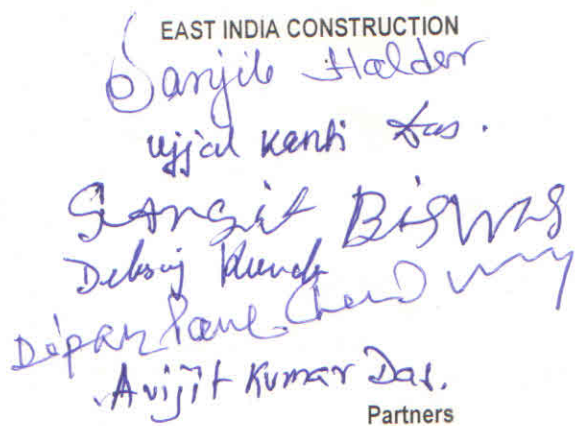 EAST INDIA CONSTRUCTION
Sanjib Halder
Ujjal Kanti Das.
Sangit Biswas
Debraj Kundu
Dipan Paul Chowdhury
Avijit Kumar Das.
Partners